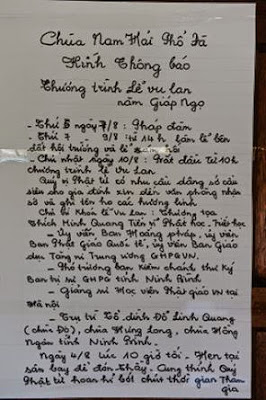 Chùa Nam Hải Phổ Đà
Kính Thông báo
Chương trình lễ vu lan
năm Giáp Ngọ
- Thứ 6 ngày 7/8: Pháp đàm
- Thứ 7 - 9/8: từ 14h bốn lễ bên
đất hội trường và lễ
- Chủ nhật ngày 10/8: Bắt đầu từ 10h
chương trình lễ Vu Lan
Quý vị Phật tử có nhu cầu dâng sớ cầu
siêu cho gia đình xin đến văn phòng nhận
sớ và ghi tên họ các hương linh
Chủ trì Khoá lễ Vu Lan: Thượng tọa
Thích Minh Quang Tiến sĩ Phật học, Triết học
- Ủy viên Ban Hoằng pháp, ủy viên
Ban Phật Giáo Quốc tế, ủy viên Ban Giáo
dục Tăng ni Trung ương GHPGVN.
- Phó trưởng ban kiêm chánh thư ký
Ban trị sự GHPG tỉnh Ninh Bình
- Giảng sư Học viện Phật giáo VN tại
Hà nội
- Trụ trì Tổ đình Đỗ Linh Quang
(chùa Đỗ), chùa Hưng Long, chùa Hồng
Ngân tỉnh Ninh Bình.
Ngày 4/8 lúc 10 giờ tối - Hẹn tại
sân bay để đón Thầy. Cung thỉnh Quý
Phật tử hoan hỉ bớt chút thời gian Tham
gia